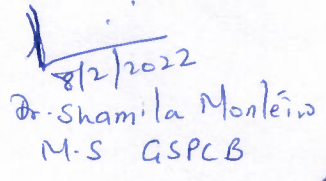 8/2/2022
Dr. Shamila Monteiro
M.S GSPCB